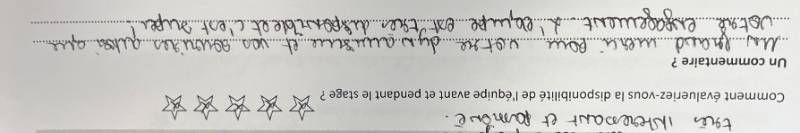 très intéressant et famoné.
Comment évalueriez-vous la disponibilité de l'équipe avant et pendant le stage ?
Un commentaire ?
Un grand merci pour votre dynamisme et vos sourires ainsi que
votre engagement. L'équipe est très disponible et c'est super !